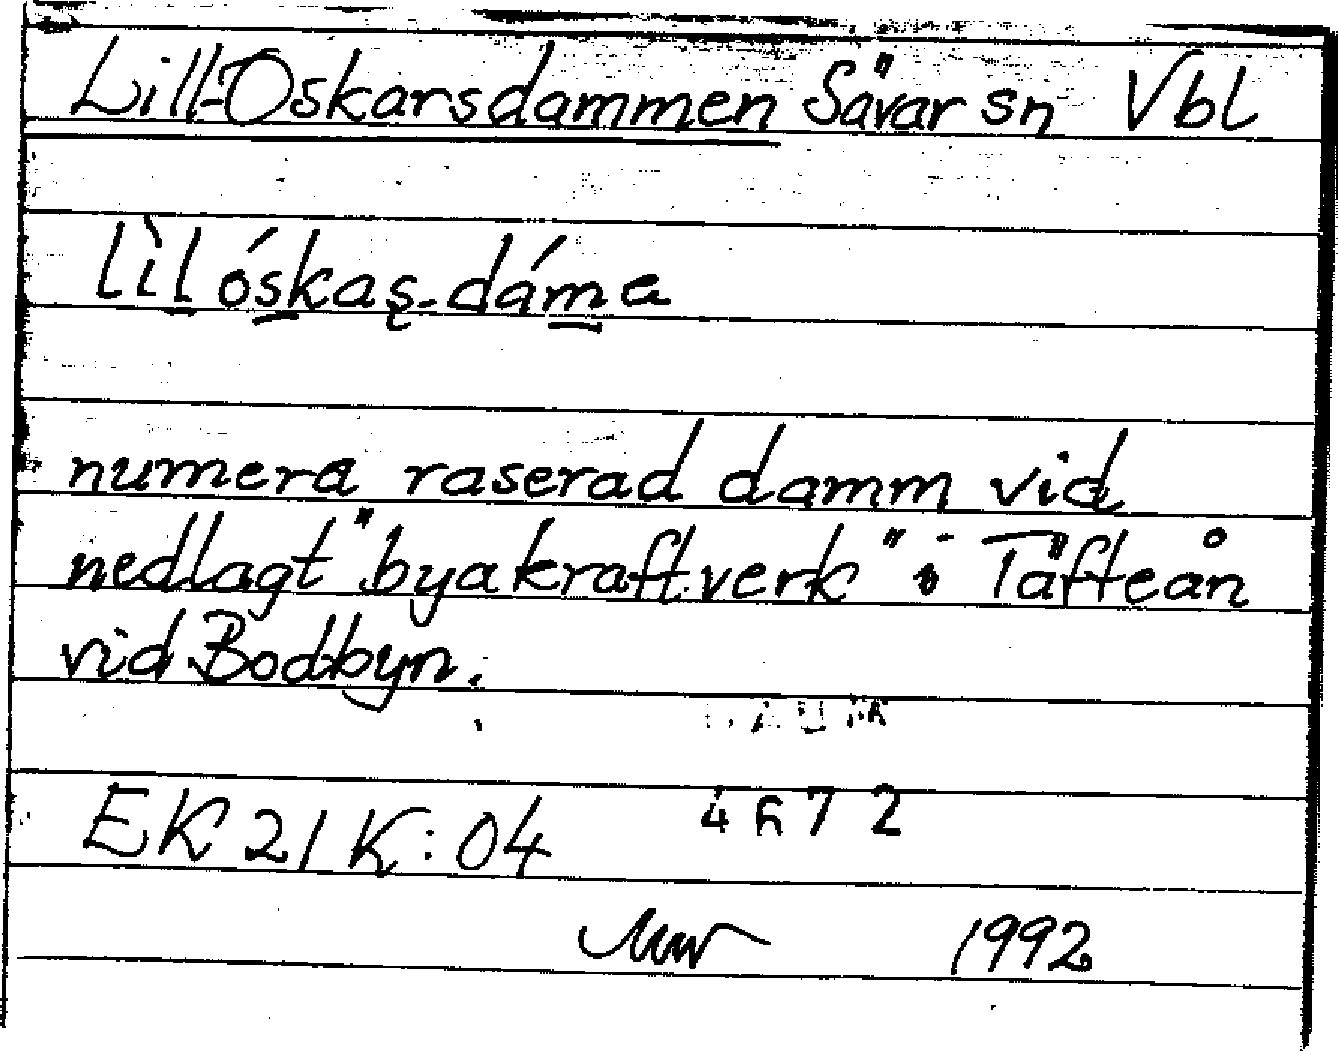 Lill-Oskarsdammen Sävar sn Vbl
lìl óskaʂ-dáma
numera raserad damm vid
nedlagt "byakraftverk" i Täfteån
vid Bodbyn.
DAUM
EK 21 K:04 4672
1992